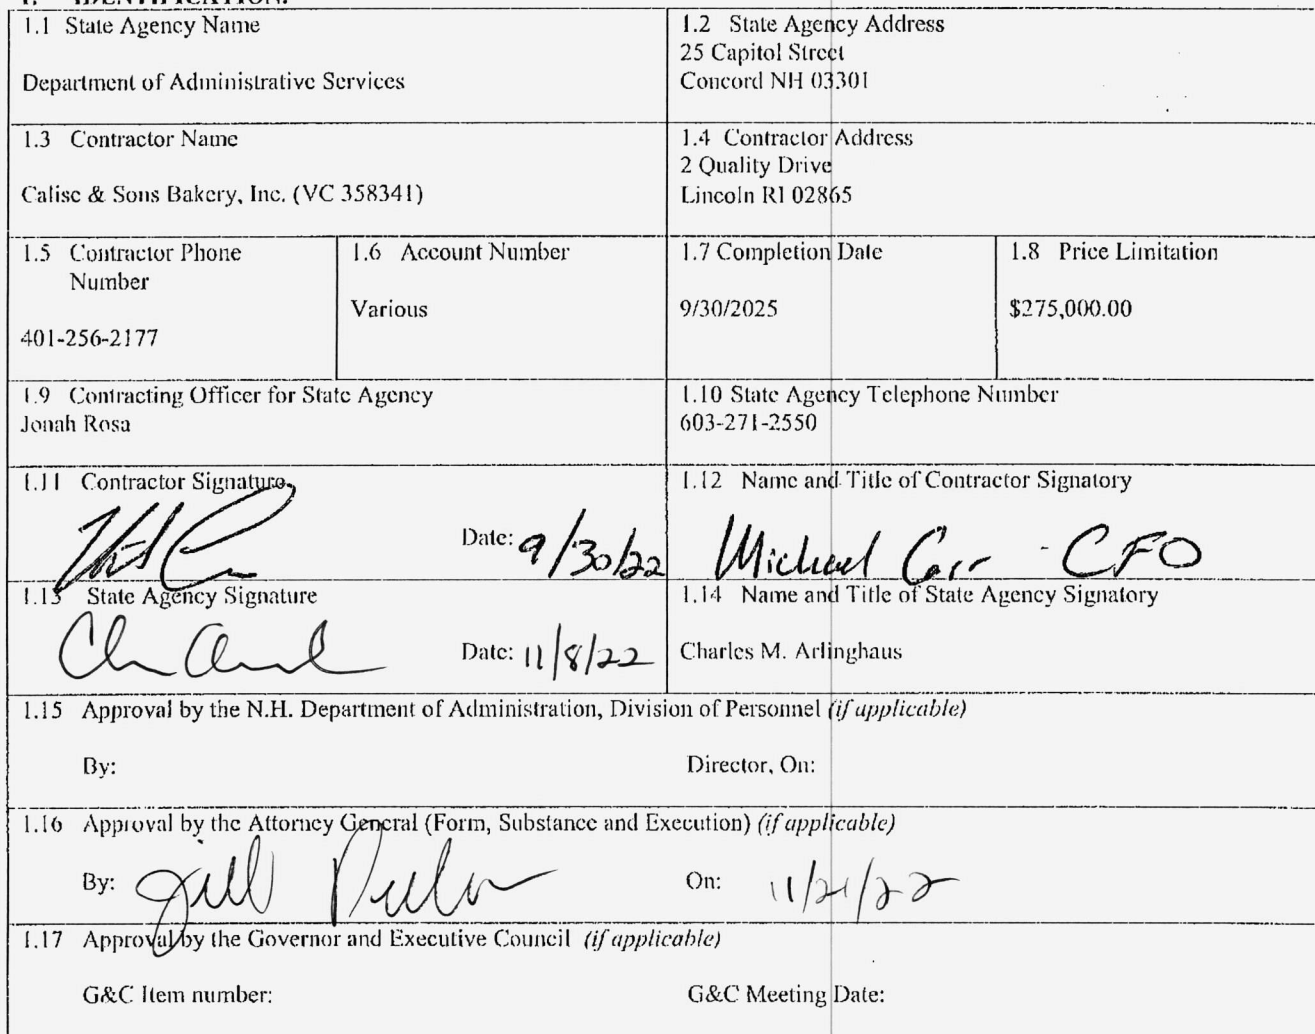 1. IDENTIFICATION.
1.1 State Agency Name
Department of Administrative Services
1.2 State Agency Address
25 Capitol Street
Concord NH 03301
1.3 Contractor Name
Calise & Sons Bakery, Inc. (VC 358341)
1.4 Contractor Address
2 Quality Drive
Lincoln RI 02865
1.5 Contractor Phone
Number
401-256-2177
1.6 Account Number
Various
1.7 Completion Date
9/30/2025
1.8 Price Limitation
$275,000.00
1.9 Contracting Officer for State Agency
Jonah Rosa
1.10 State Agency Telephone Number
603-271-2550
1.11 Contractor Signature
Date: 9/30/22
1.12 Name and Title of Contractor Signatory
Michael Carr - CFO
1.13 State Agency Signature
Date: 11/8/22
1.14 Name and Title of State Agency Signatory
Charles M. Arlinghaus
1.15 Approval by the N.H. Department of Administration, Division of Personnel (if applicable)
By:
Director, On:
1.16 Approval by the Attorney General (Form, Substance and Execution) (if applicable)
By: Jill
On: 11/21/22
1.17 Approval by the Governor and Executive Council (if applicable)
G&C Item number:
G&C Meeting Date: